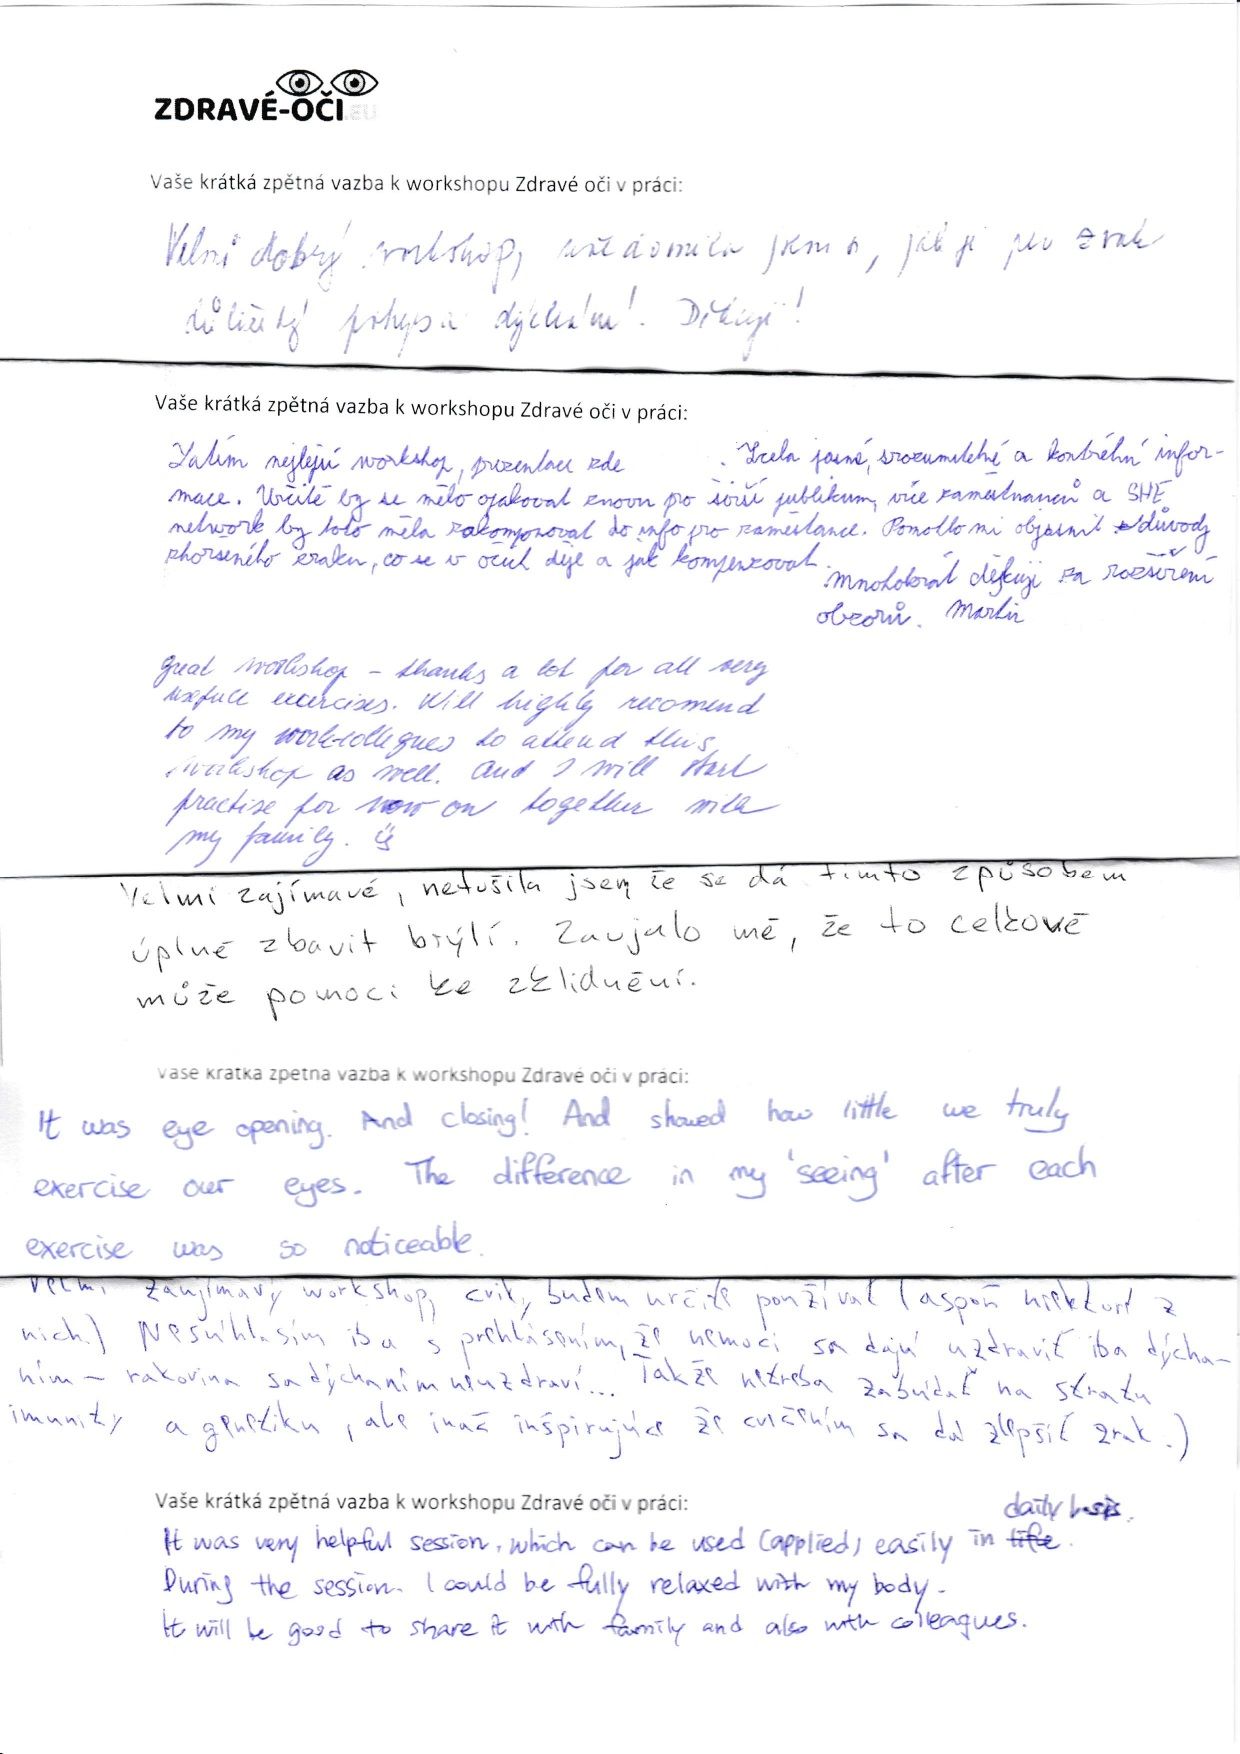 ZDRAVÉ-OČI.EU
Vaše krátká zpětná vazba k workshopu Zdravé oči v práci:
Velmi dobrý workshop, uvědomila jsem si, jak je pro zrak
důležitý pohyb a dýchání. Děkuji!
Vaše krátká zpětná vazba k workshopu Zdravé oči v práci:
Zatím nejlepší workshop, prezentace zde . Zcela jasné, srozumitelné a konkrétní infor-
mace. Určitě by se mělo opakovat znovu pro širší publikum, více zaměstnanců a SHE
network by toto měla zakomponovat do info pro zaměstance. Pomohlo mi objasnit důvody
zhoršeného zraku, co se v očích děje a jak kompenzovat.
Mnohokrát děkuji za rozšíření
obzorů. Martin
Great workshop - thanks a lot for all very
usefull excercises. Will highly recomend
to my work-collegues to attend this
workshop as well. And I will start
practise for now on together with
my family.
Velmi zajímavé, netušila jsem že se dá tímto způsobem
úplně zbavit brýlí. Zaujalo mě, že to celkově
může pomoci ke zklidnění.
Vaše krátká zpětná vazba k workshopu Zdravé oči v práci:
It was eye opening. And closing! And showed how little we truly
exercise our eyes. The difference in my 'seeing' after each
exercise was so noticeable.
Velmi zaujímavý workshop, cviky budem určite používať (aspoň niektoré z
nich.) Nesúhlasím iba s prehlásením, že nemoci sa dajú uzdraviť iba dýcha-
ním - rakovina sa dýchaním neuzdraví... Takže netreba zabúdať na stratu
imunity a genetiku, ale inač inšpirujúce že cvičením sa dá zlepšiť zrak.)
Vaše krátká zpětná vazba k workshopu Zdravé oči v práci:
daily basis.
It was very helpful session, which can be used (applied) easily in life.
During the session. I could be fully relaxed with my body.
It will be good to share it with family and also with colleagues.